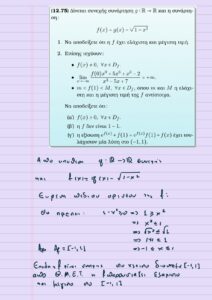 (12.75) Δίνεται συνεχής συνάρτηση g : ℝ → ℝ και η συνάρτη-
ση:
f(x) = g(x) − √1 − x²
1. Να αποδείξετε ότι η f έχει ελάχιστη και μέγιστη τιμή.
2. Επίσης ισχύουν:
• f(x) ≠ 0, ∀x ∈ D_f.
• lim f(0)x³ − 5x² + x² − 2 / x² − 5x + 7 = +∞.
• m + f(1) < M, ∀x ∈ D_f, όπου m και M η ελάχι-
στη και η μέγιστη τιμή της f αντίστοιχα.
Να αποδείξετε ότι:
(α) f(x) > 0, ∀x ∈ D_f.
(β) η f δεν είναι 1 − 1.
(γ) η εξίσωση
+ f(x) έχει του-
λάχιστον μία λύση στο (−1, 1).
Από υπόθεση g: ℝ → ℝ συνεχής
και f(x) = g(x) − √1−x²
Εύρεση πεδίου ορισμού της f:
Θα πρέπει: 1−x² ≥ 0 ⇔ 1 ≥ x²
⇔ x² ≤ 1
⇔ √x² ≤ √1
⇔ |x| ≤ 1
Άρα A_f = [−1, 1] ⇔ −1 ≤ x ≤ 1
Επειδή f είναι συνεχής στο κλειστό διάστημα [−1, 1]
από Θ.Μ.Ε.Τ. η f παρουσιάζει ελάχιστο
και μέγιστο στο [−1, 1]